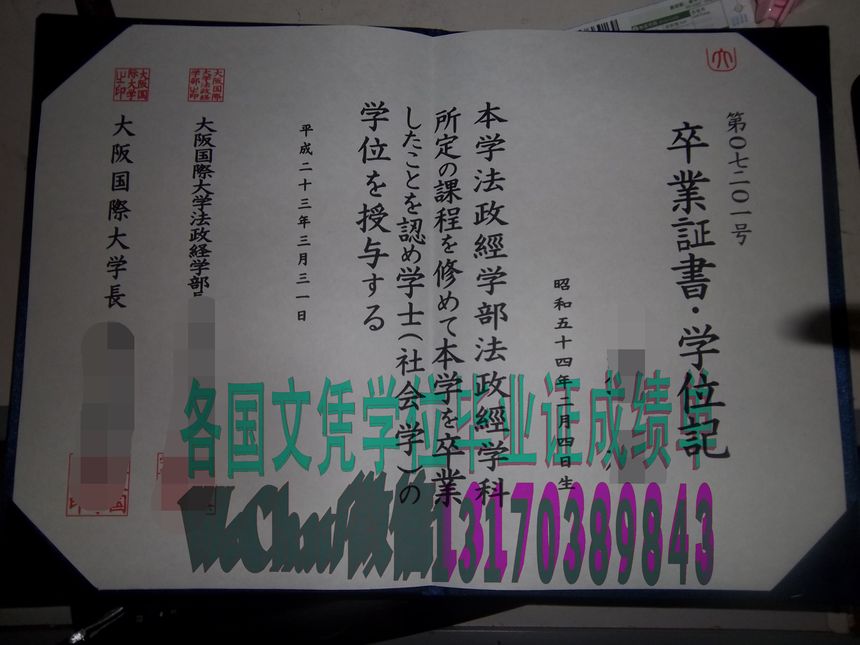 第〇七二〇一号
卒業証書・学位記
昭和五十四年二月四日生
本学法政經学部法政經学科
所定の課程を修めて本学を卒業
したことを認め学士(社会学)の
学位を授与する
平成二十三年三月三一日
大阪国際大学法政経学部長
大阪国際大学長
大阪国際
大学法政経
学部之印
大阪国
際大学
之印
各国文凭学位毕业证成绩单
WeChat/微信13170389843